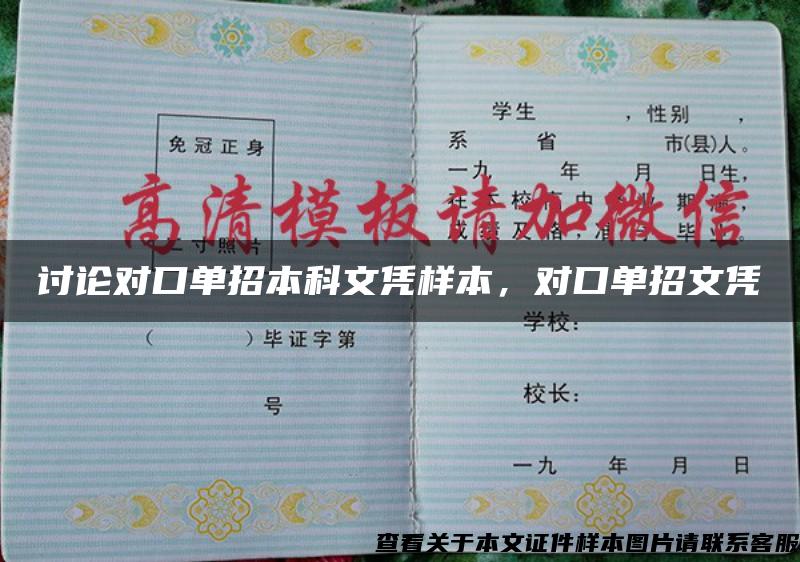 免冠正身
二寸照片
（ ）毕证字第
号
学生 ，性别 ，
系 省 市(县)人。
一九 年 月 日生，
高清模板请加微信
讨论对口单招本科文凭样本，对口单招文凭
学校：
校长：
一九 年 月 日
查看关于本文证件样本图片请联系客服